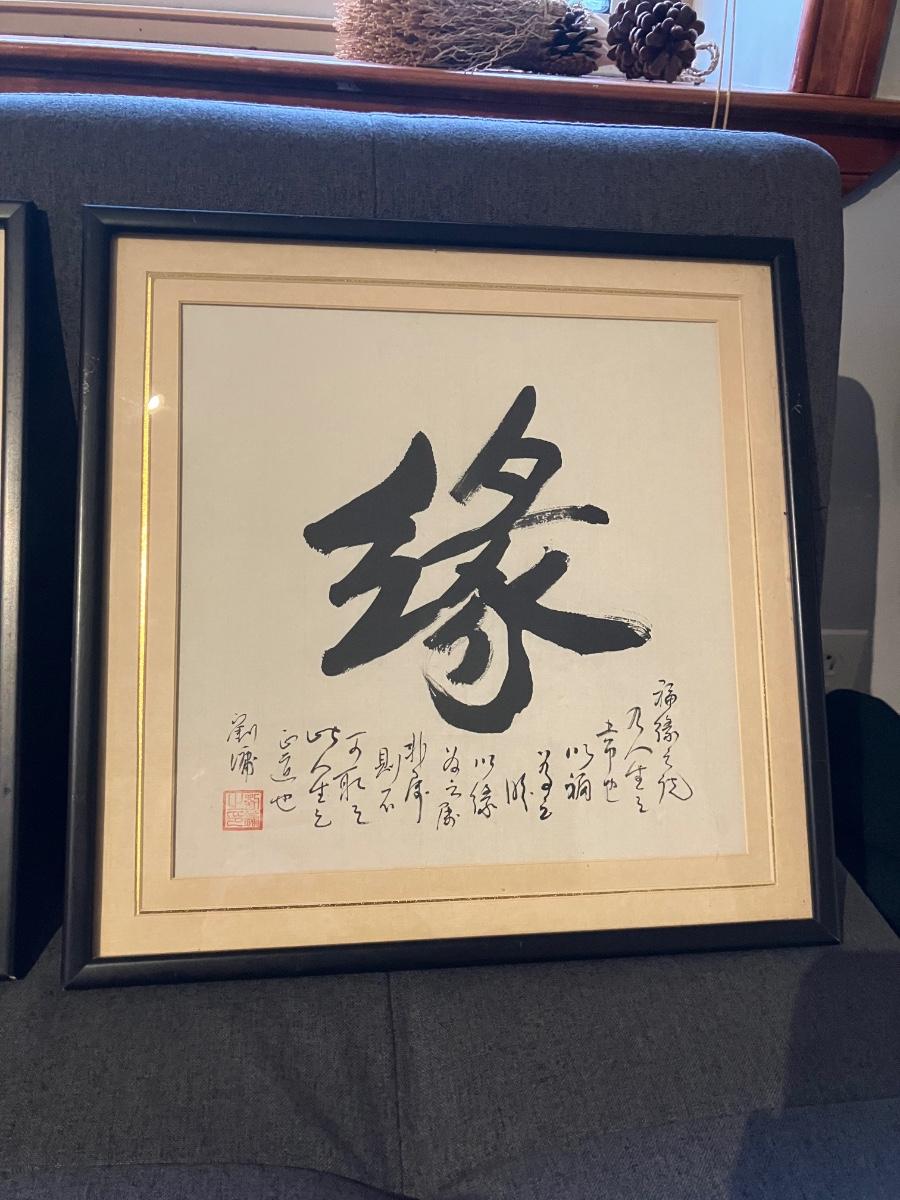 緣
福緣之說
乃人生之
常也
以禍
以緣
為之屬
非屬
則不
可取之
此人生之
正道也
劉